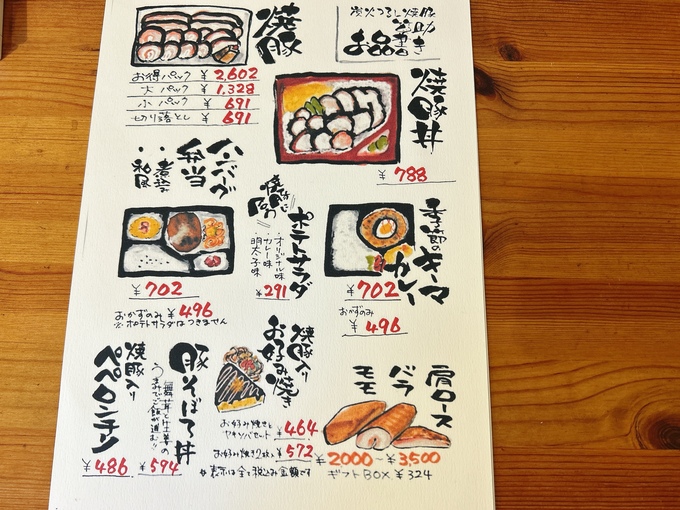 炭火つるし焼豚
助
お品書き
焼豚
お得パック ¥2,602
大パック ¥1,328
小パック ¥691
切り落とし ¥691
焼豚丼
¥788
ハンバーグ
弁当
・煮込み
・和風
¥702
おかずのみ ¥496
※ポテトサラダはつきません
焼豚
ポテトサラダ
オリジナル味
カレー味
明太子味
¥291
季節のキーマ
カレー
¥702
おかずのみ
¥496
焼豚入り
ペペロンチーノ
¥486
豚そぼろ丼
舞茸と生姜の
うまみでご飯が進む!!
¥594
焼豚入り
お好み焼き
お好み焼きと
ヤキソバセット ¥464
お好み焼き2枚入 ¥572
※表示は全て税込み金額です
肩ロース
バラ
モモ
¥2000〜¥3,500
ギフトBOX ¥324